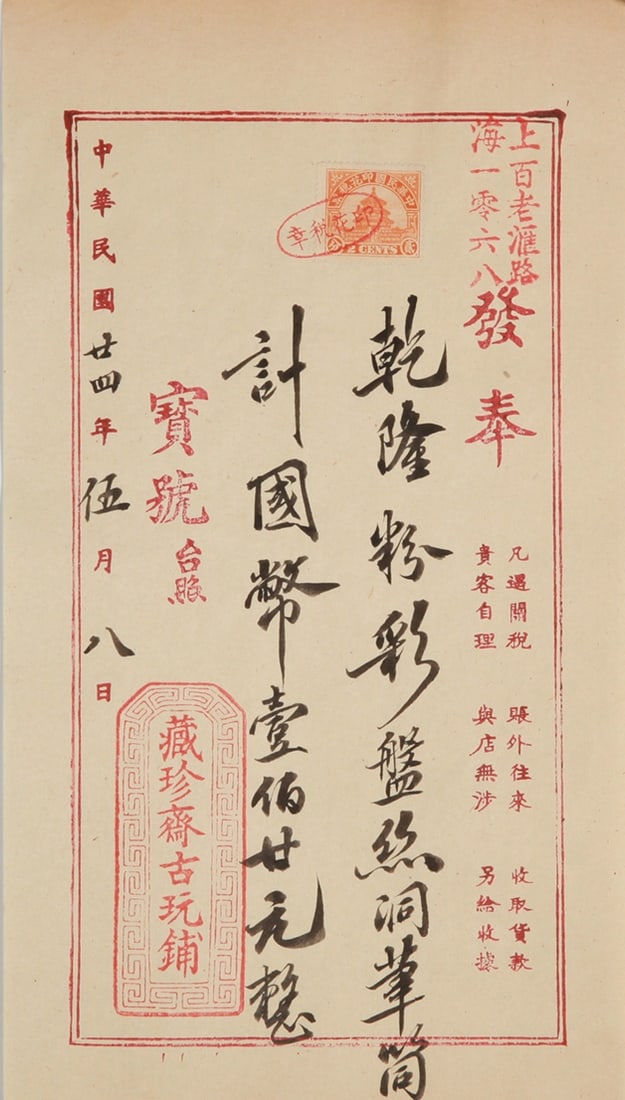 上百老滙路
海一零六八
發奉
凡遇關稅 賬外往來 收取貨款
貴客自理 與店無涉 另給收據
中華民國印花稅票
貳分
2 CENTS
印花稅章
乾隆粉彩盤絲洞筆筒
計國幣壹佰廿元整
寶號台照
藏珍齋古玩鋪
中華民國廿四年伍月八日